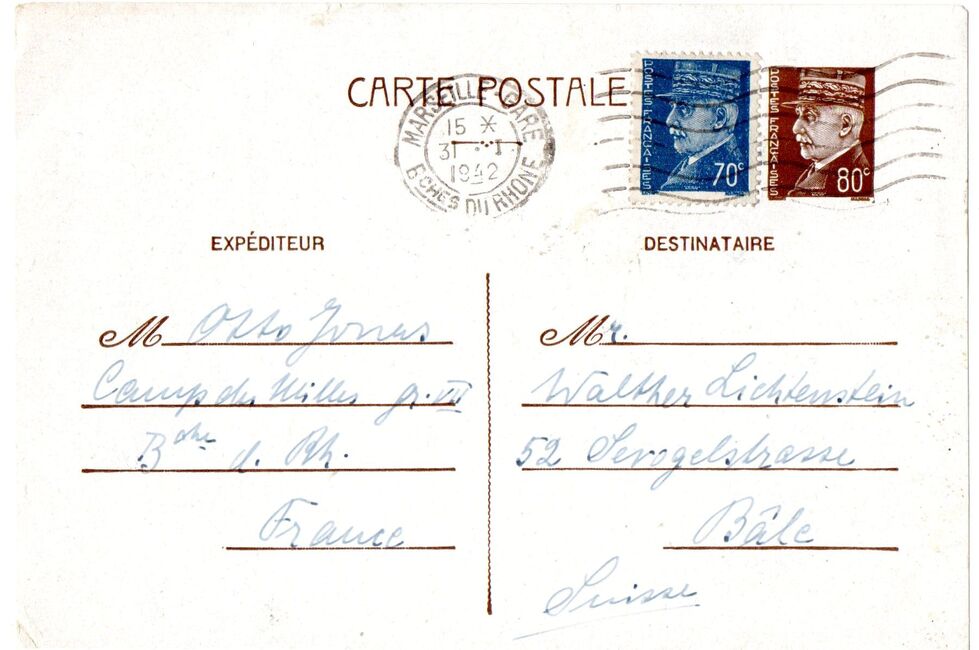 CARTE POSTALE
MARSEILLE GARE
15 *
31 I
1942
Bches DU RHÔNE
POSTES FRANÇAISES
70c
POSTES FRANÇAISES
80c
EXPÉDITEUR
M Otto Jonas
Camp des Milles gr. VII
Bche d. Rh.
France
DESTINATAIRE
Mr.
Walther Lichtenstein
52 Sevogelstrasse
Bâle
Suisse